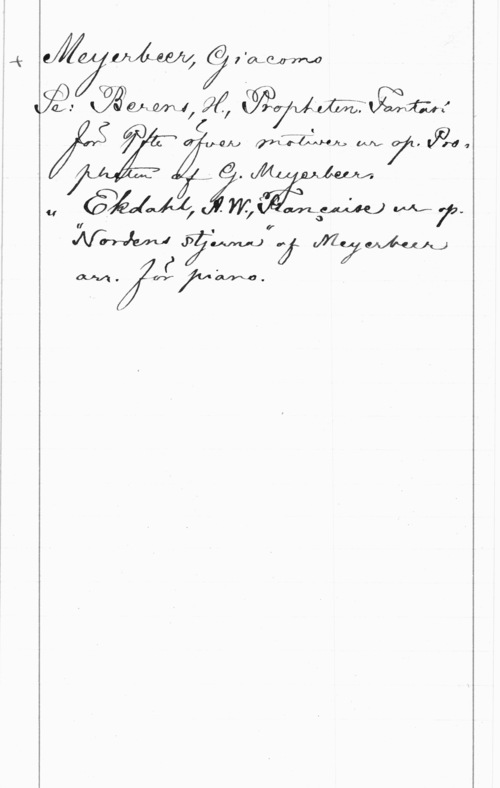 + Meyerbeer, Giacomo
Se: Berens, H., Propheten. Fantasi
för Pfte öfver motiver ur op. Pro-
pheten af G. Meyerbeer.
" Ekdahl, A.W., Française ur op.
"Nordens stjerna" af Meyerbeer
arr. för piano.